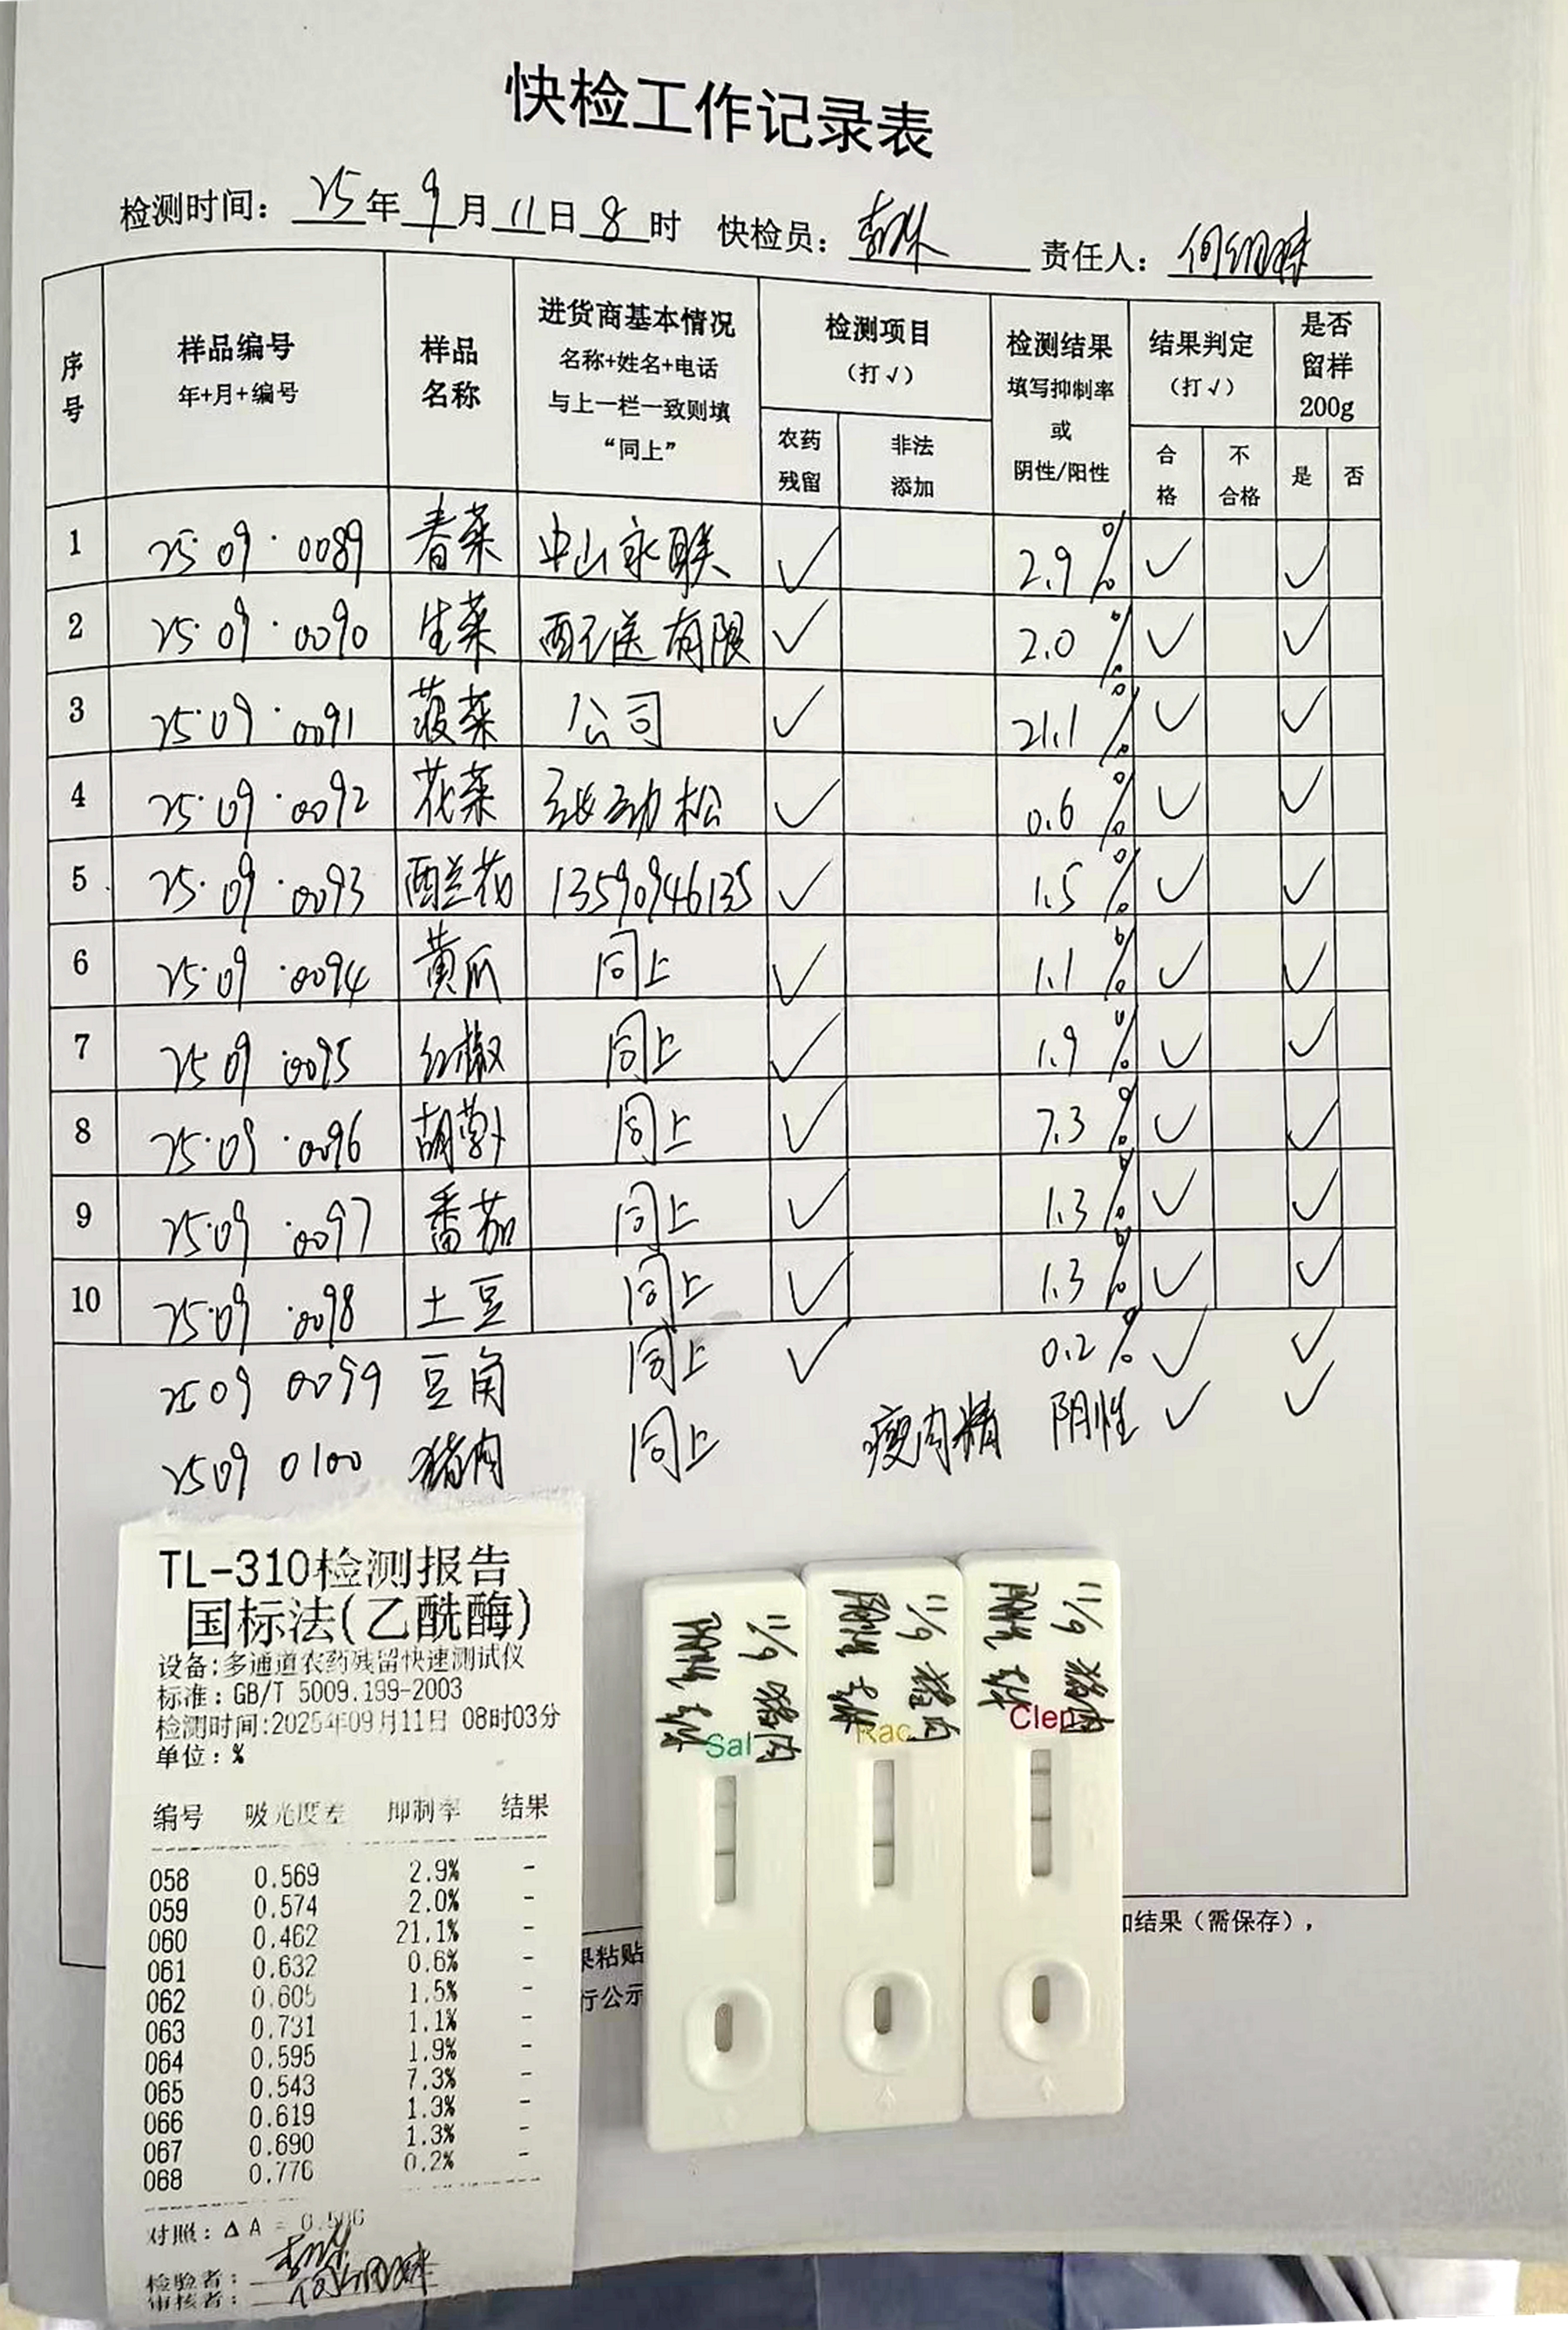 快检工作记录表
检测时间: 25年9月11日8时 快检员: 责任人:
序号 样品编号 年+月+编号 样品名称 进货商基本情况 名称+姓名+电话 与上一栏一致则填“同上” 检测项目(打√) 农药残留 非法添加 检测结果 填写抑制率或阴性/阳性 结果判定(打√) 合格 不合格 是否留样200g 是 否
1 25·09·0089 春菜 中山永联 √ 2.9% √ √
2 25·09·0090 生菜 配送有限 √ 2.0% √ √
3 25·09·0091 菠菜 公司 √ 21.1% √ √
4 25·09·0092 花菜 张劲松 √ 0.6% √ √
5 25·09·0093 西兰花 13590946135 √ 1.5% √ √
6 25·09·0094 黄瓜 同上 √ 1.1% √ √
7 25 09·0095 红椒 同上 √ 1.9% √ √
8 25·09·0096 胡萝卜 同上 √ 7.3% √ √
9 25·09·0097 番茄 同上 √ 1.3% √ √
10 25·09·0098 土豆 同上 √ 1.3% √ √
2509 0099 豆角 同上 √ 0.2% √ √
2509 0100 猪肉 同上 瘦肉精 阴性 √ √
TL-310检测报告
国标法(乙酰酶)
设备:多通道农药残留快速测试仪
标准: GB/T 5009.199-2003
检测时间:2025年09月11日 08时03分
单位: %
编号 吸光度差 抑制率 结果
058 0.569 2.9% -
059 0.574 2.0% -
060 0.462 21.1% -
061 0.632 0.6% -
062 0.605 1.5% -
063 0.731 1.1% -
064 0.595 1.9% -
065 0.543 7.3% -
066 0.619 1.3% -
067 0.690 1.3% -
068 0.776 0.2% -
对照: ΔA =
检验者:
审核者:
11/9 猪肉
阴性
Sal
11/9 猪肉
阴性
Rac
11/9 猪肉
阴性
Clen
果粘贴
加结果(需保存),
行公示